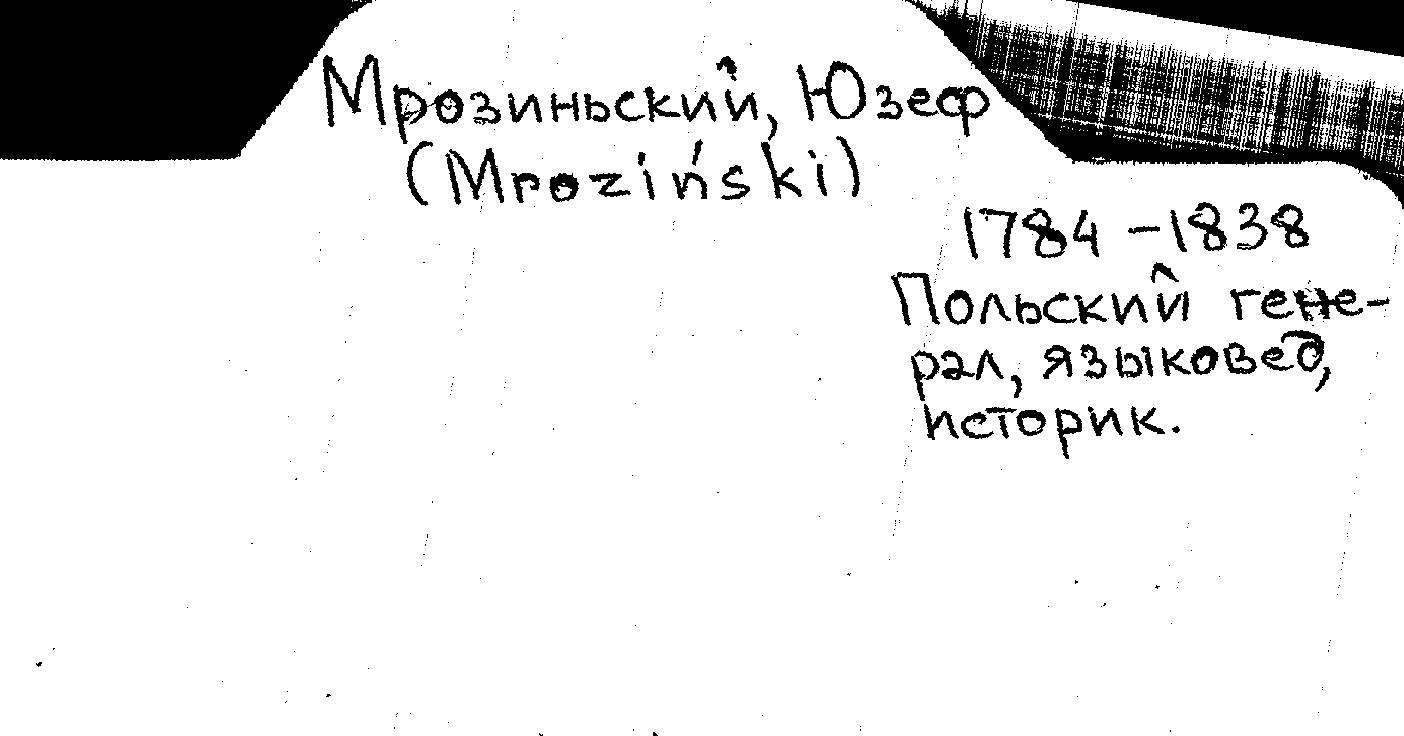 Мрозиньский, Юзеф
(Mroziński)
1784 – 1838
Польский гене-
рал, языковед,
историк.